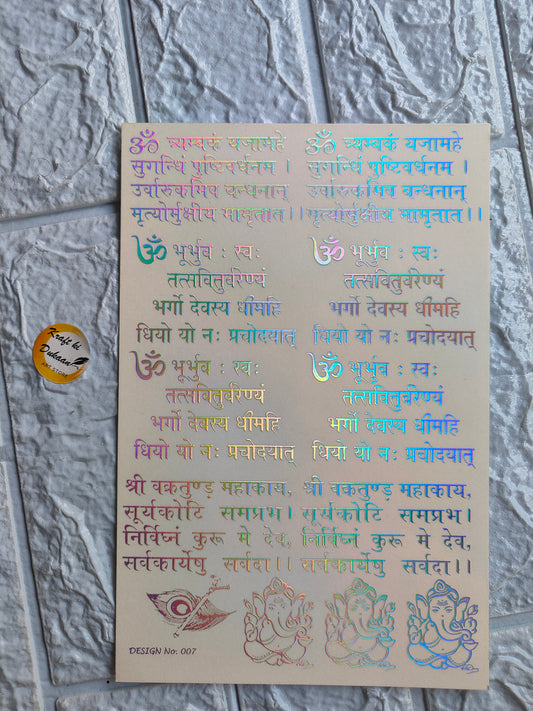 ॐ त्र्यम्बकं यजामहे
सुगन्धिं पुष्टिवर्धनम ।
उर्वारुकमिव बन्धनान्
मृत्योर्मुक्षीय मामृतात ।।
ॐ त्र्यम्बकं यजामहे
सुगन्धिं पुष्टिवर्धनम ।
उर्वारुकमिव बन्धनान्
मृत्योर्मुक्षीय मामृतात ।।
ॐ भूर्भुव : स्वः
तत्सवितुर्वरेण्यं
भर्गो देवस्य धीमहि
धियो यो नः प्रचोदयात्
ॐ भूर्भुव : स्वः
तत्सवितुर्वरेण्यं
भर्गो देवस्य धीमहि
धियो यो नः प्रचोदयात्
ॐ भूर्भुव : स्वः
तत्सवितुर्वरेण्यं
भर्गो देवस्य धीमहि
धियो यो नः प्रचोदयात्
ॐ भूर्भुव : स्वः
तत्सवितुर्वरेण्यं
भर्गो देवस्य धीमहि
धियो यो नः प्रचोदयात्
श्री वक्रतुण्ड महाकाय,
सूर्यकोटि समप्रभ।
निर्विघ्नं कुरू मे देव,
सर्वकार्येषु सर्वदा।।
श्री वक्रतुण्ड महाकाय,
सूर्यकोटि समप्रभ।
निर्विघ्नं कुरू मे देव,
सर्वकार्येषु सर्वदा।।
DESIGN No: 007
Kraft ki
Dukaan
ART STORE